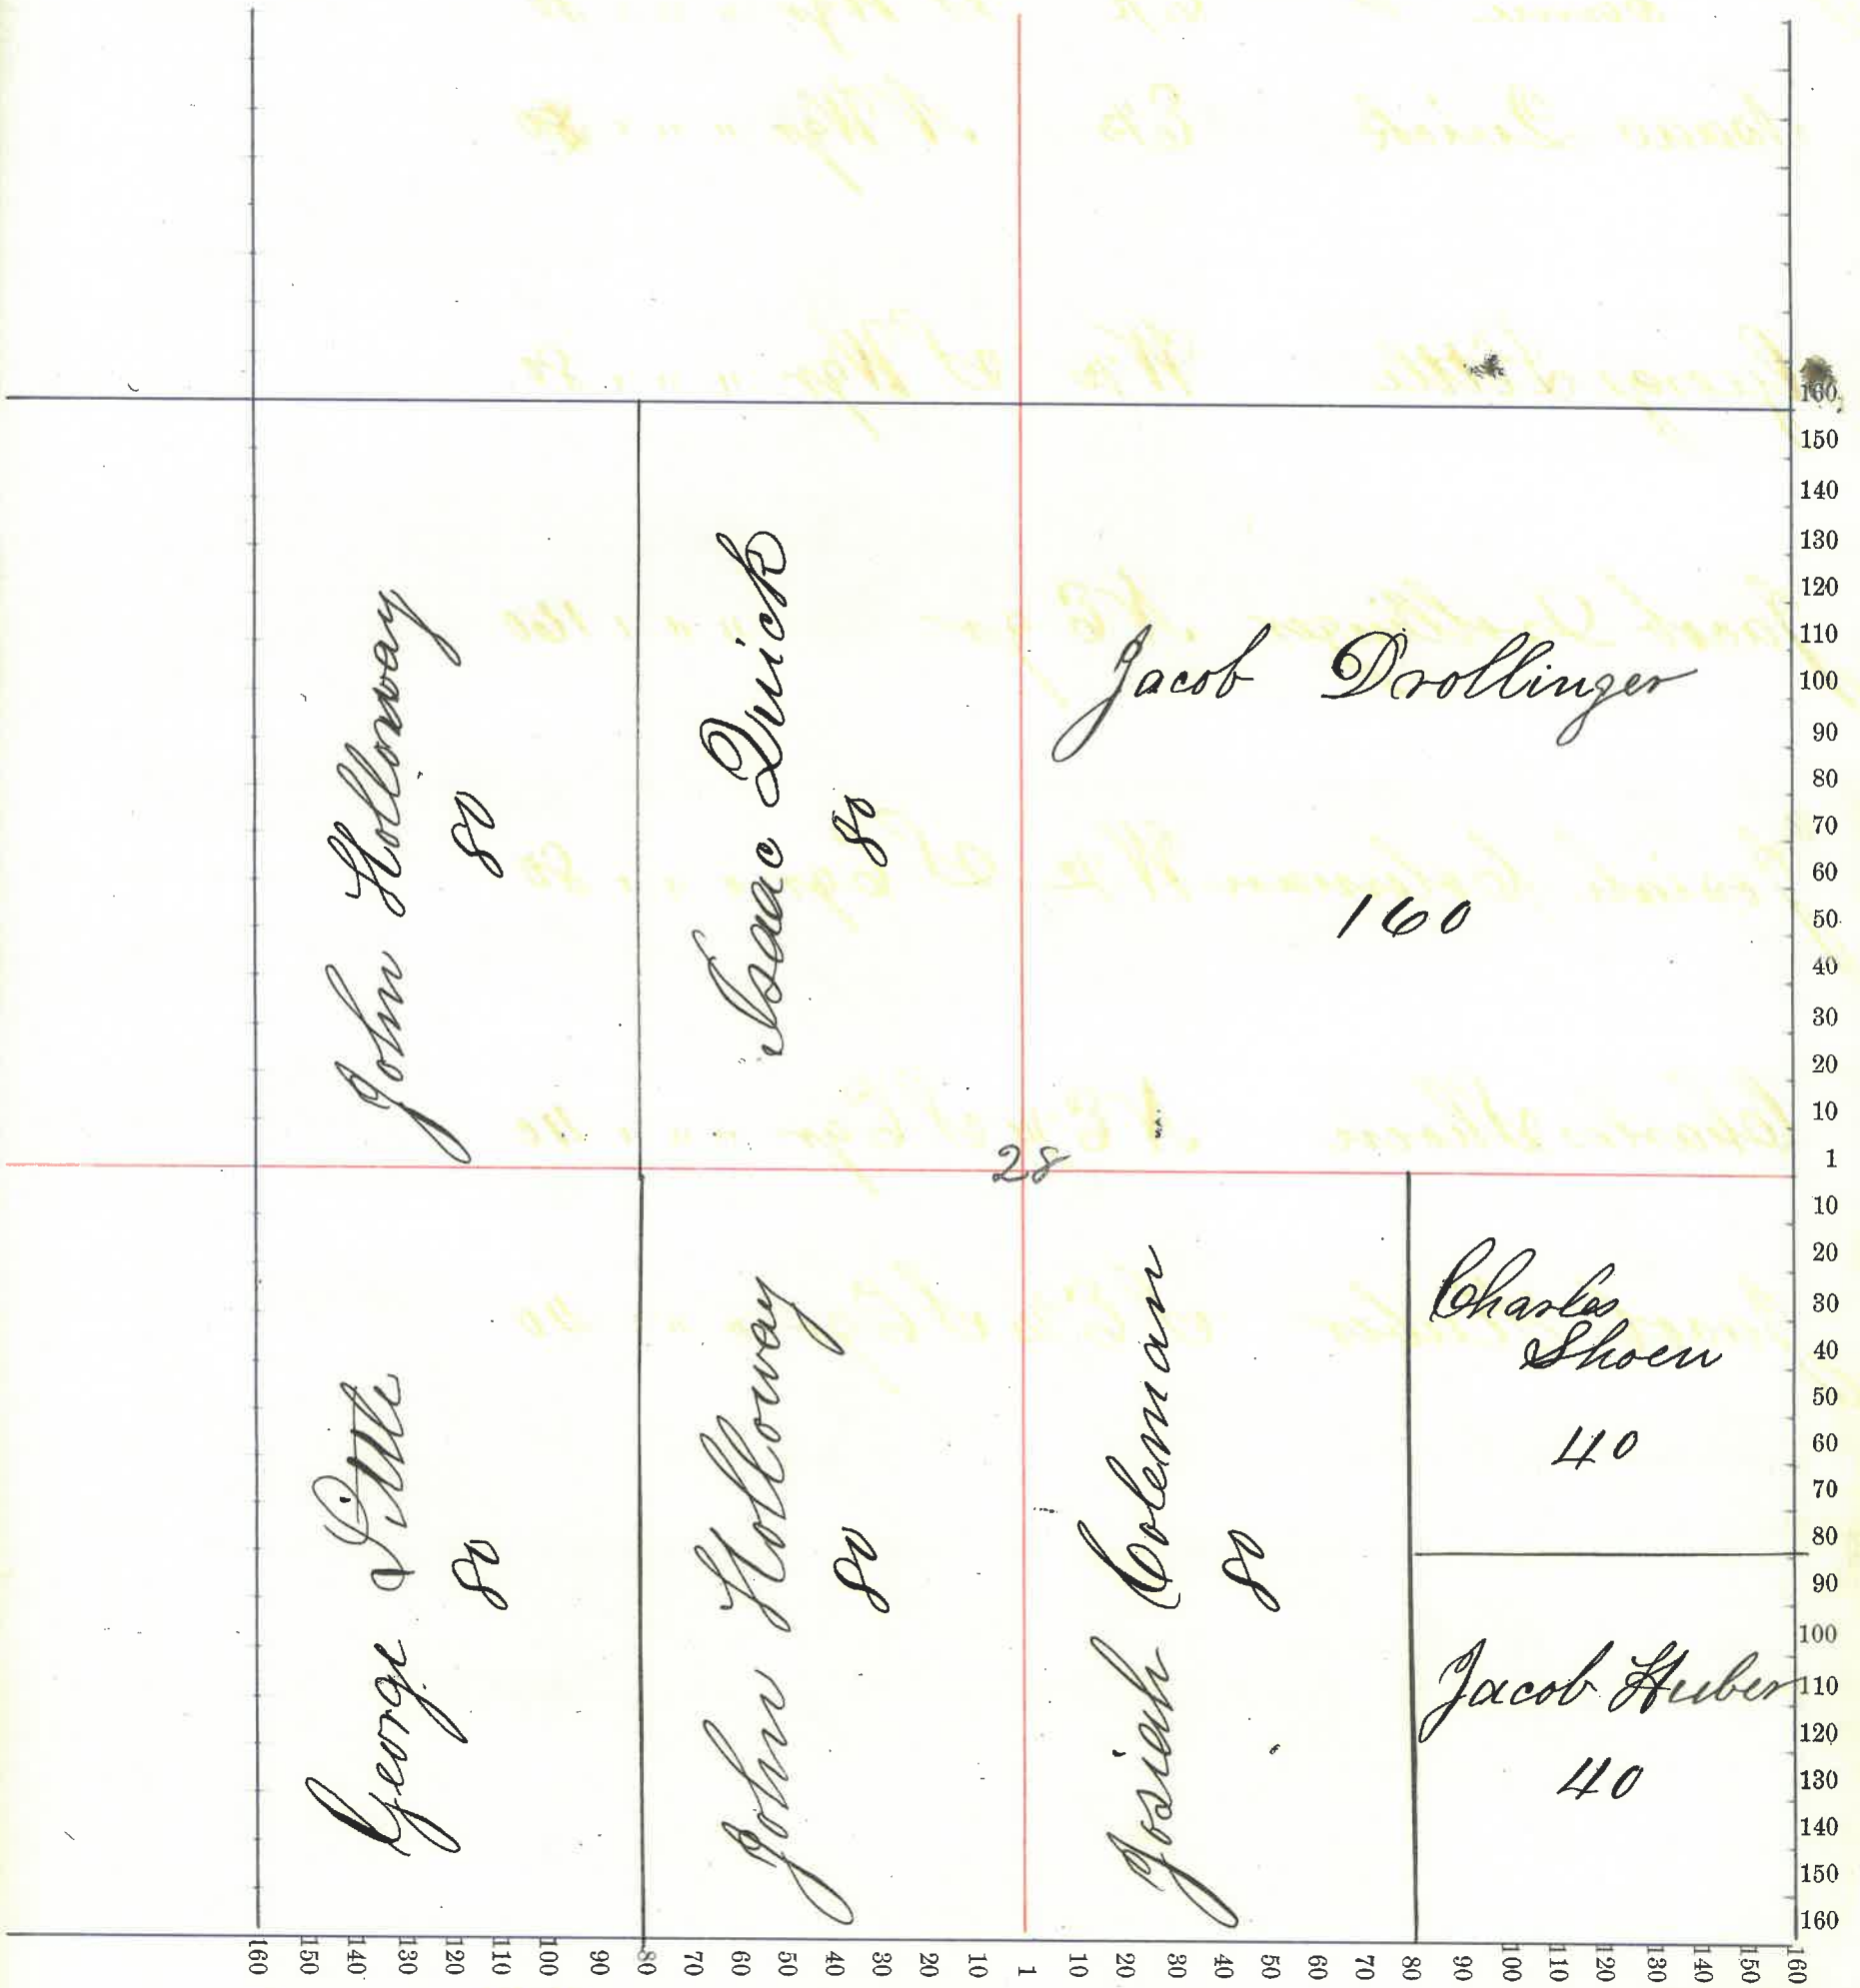 John Holloway
80
Isaac Quick
80
Jacob Drollinger
160
28
George Little
80
John Holloway
80
Josiah Coleman
80
Charles
Shoen
40
Jacob Huber
40
160
150
140
130
120
110
100
90
80
70
60
50
40
30
20
10
1
10
20
30
40
50
60
70
80
90
100
110
120
130
140
150
160
160 150 140 130 120 110 100 90 80 70 60 50 40 30 20 10 1 10 20 30 40 50 60 70 80 90 100 110 120 130 140 150 160